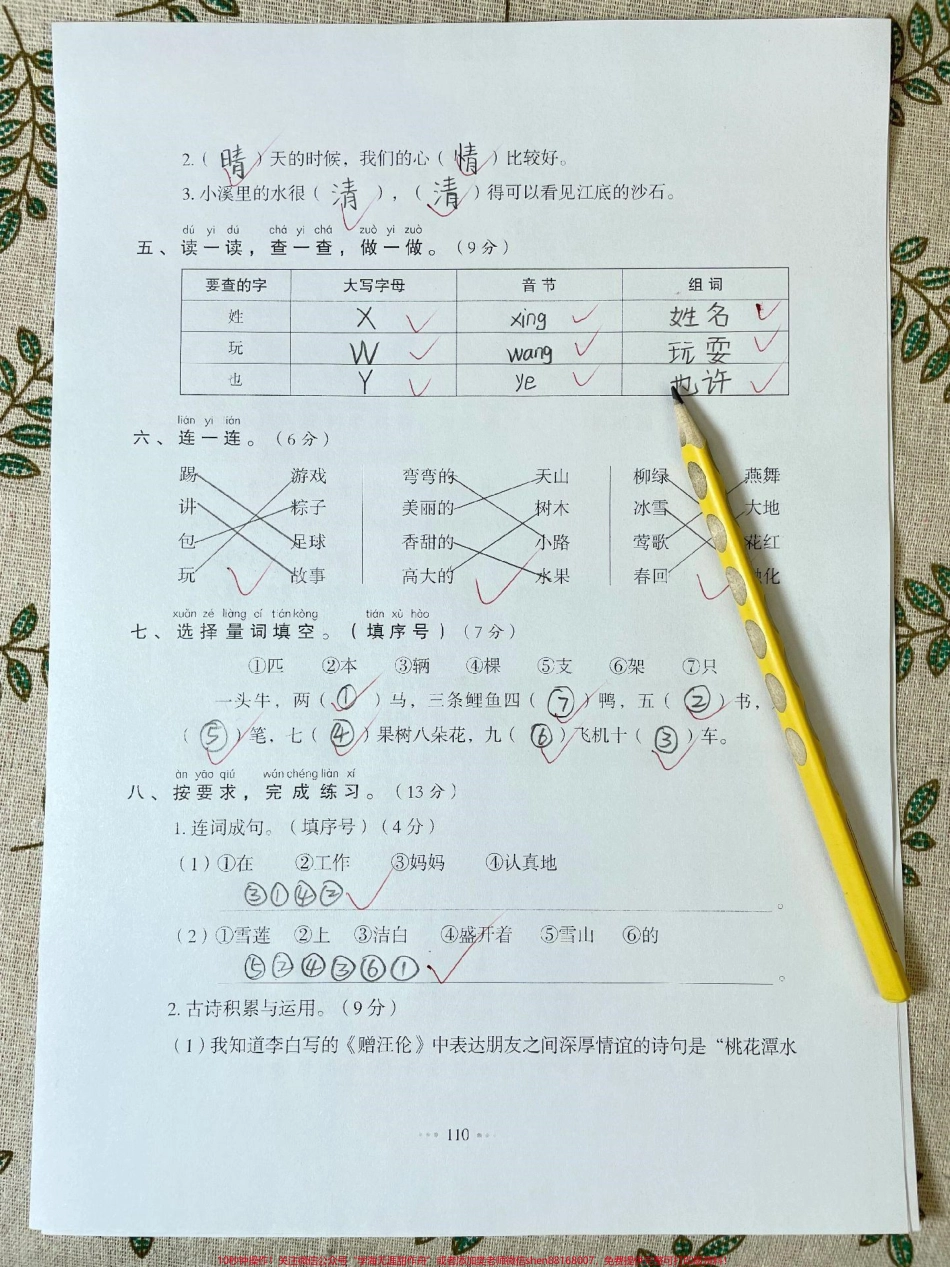 2.（晴）天的时候，我们的心（情）比较好。
3.小溪里的水很（清），（清）得可以看见江底的沙石。
dú yi dú chá yi chá zuò yi zuò
五、读一读，查一查，做一做。（9分）
要查的字 大写字母 音节 组词
姓 X xing 姓名
玩 W wang 玩耍
也 Y ye 也许
lián yi lián
六、连一连。（6分）
踢 游戏 弯弯的 天山 柳绿 燕舞
讲 粽子 美丽的 树木 冰雪 大地
包 足球 香甜的 小路 莺歌 花红
玩 故事 高大的 水果 春回 化
xuǎn zé liàng cí tián kòng tián xù hào
七、选择量词填空。（填序号）（7分）
①匹 ②本 ③辆 ④棵 ⑤支 ⑥架 ⑦只
一头牛，两（①）马，三条鲤鱼四（⑦）鸭，五（②）书，
（⑤）笔，七（④）果树八朵花，九（⑥）飞机十（③）车。
àn yāo qiú wán chéng liàn xí
八、按要求，完成练习。（13分）
1.连词成句。（填序号）（4分）
（1）①在 ②工作 ③妈妈 ④认真地
③①④② 。
（2）①雪莲 ②上 ③洁白 ④盛开着 ⑤雪山 ⑥的
⑤②④③⑥① 。
2.古诗积累与运用。（9分）
（1）我知道李白写的《赠汪伦》中表达朋友之间深厚情谊的诗句是“桃花潭水
110